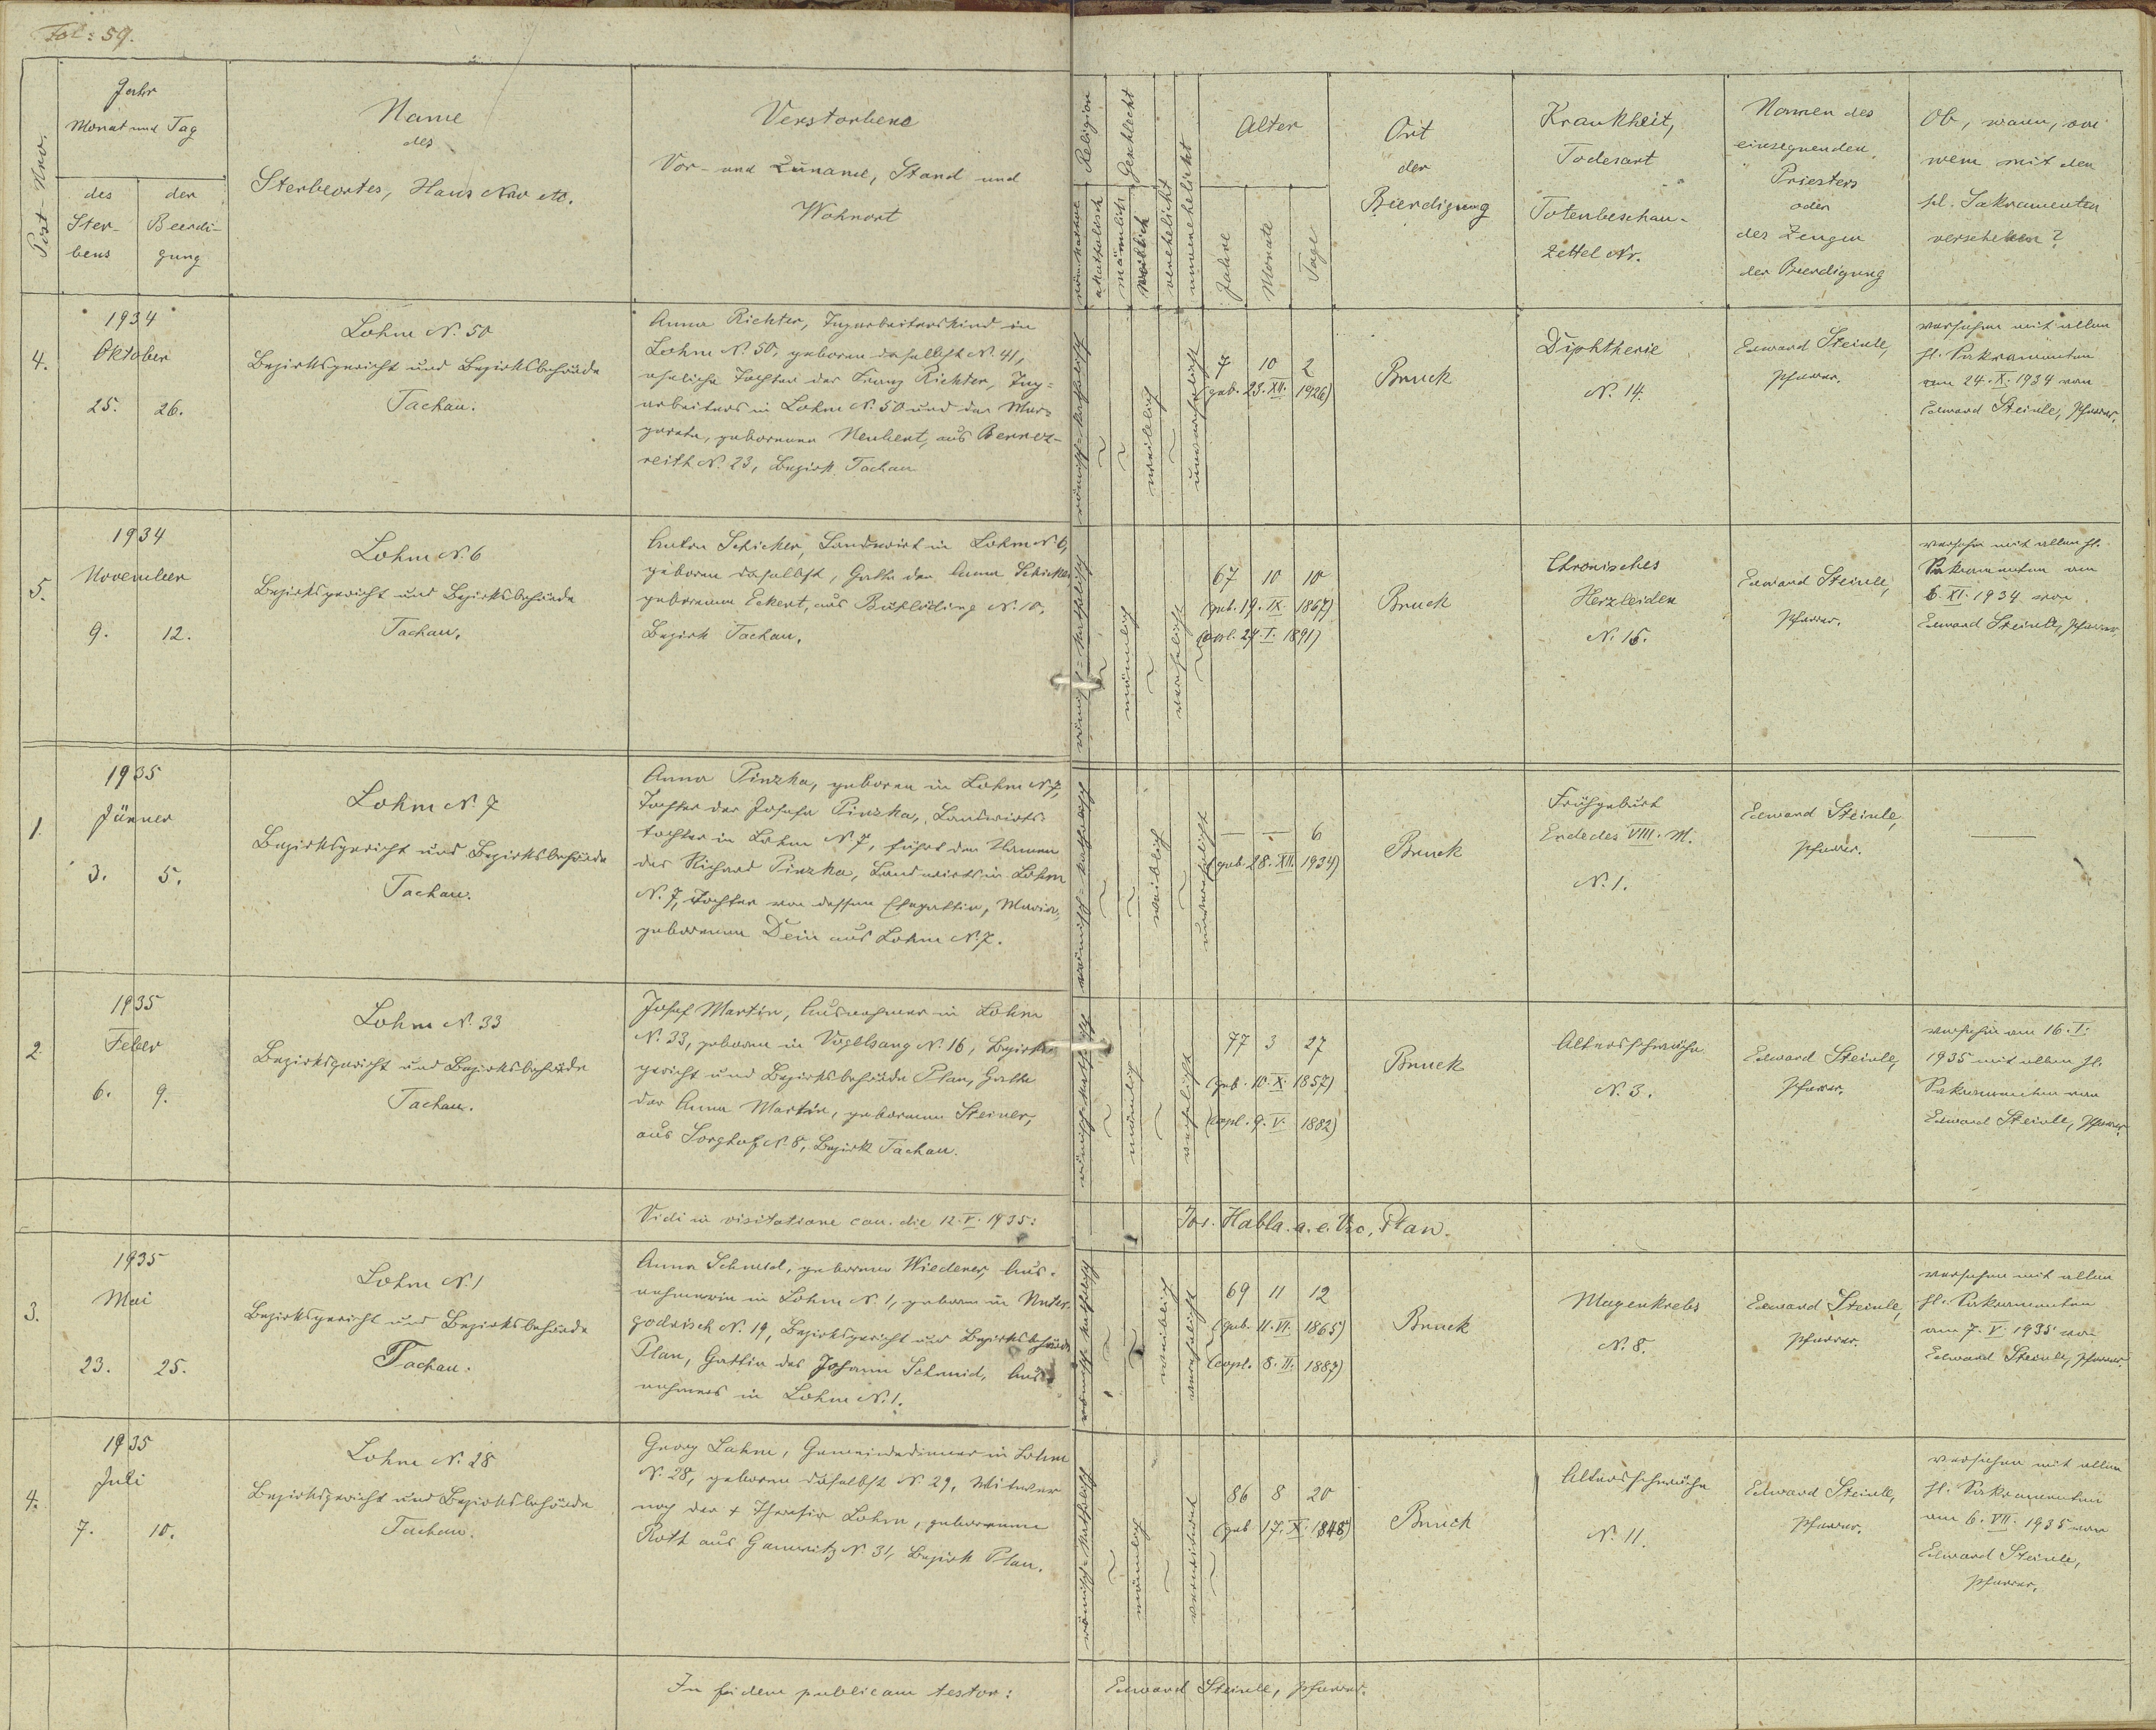 Fol: 59.
Post-Nro.
Jahr
Monat und Tag
des Ster-
bens
der Beerdi-
gung
Name
des
Sterbeortes, Haus Nro etc.
Verstorbene
Vor- und Zuname, Stand und
Wohnort
Religion
römkathol.
akatholisch
Geschlecht
männlich
weiblich
verehelicht
unverehelicht
Alter
Jahre
Monate
Tage
Ort
der
Beerdigung
Krankheit,
Todesart
Totenbeschau-
zettel Nr.
Namen des
einsegnenden
Priesters
oder
des Zeugen
der Beerdigung
Ob, wann, von
wem mit den
hl. Sakramenten
versehen?
4.
1934
Oktober
25. 26.
Lohm N. 50
Bezirksgericht und Bezirksbehörde
Tachau.
Anna Richter, Tagarbeiterskind in
Lohm N. 50, geboren daselbst N. 41,
eheliche Tochter des Franz Richter, Tag-
arbeiters in Lohm N. 50 und der Mar-
gareta, geborenen Neubert, aus Bernet-
reith N. 23, Bezirk Tachau
römisch-katholisch
weiblich
unverehelicht
7 10 2
(geb. 23. XII. 1926)
Bruck
Diphtherie
N. 14.
Edward Steinle,
Pfarrer.
versehen mit allen
hl. Sakramenten
am 24. X. 1934 von
Edward Steinle, Pfarrer.
5.
1934
November
9. 12.
Lohm N. 6
Bezirksgericht und Bezirksbehörde
Tachau.
Anton Schicker, Landwirt in Lohm N. 6,
geboren daselbst, Gatte der Anna Schicker
geborenen Eckert, aus N. 10,
Bezirk Tachau.
römisch-katholisch
männlich
verehelicht
67 10 10
(geb. 19. IX. 1867)
(copl. 27. I. 1891)
Bruck
Chronisches
Herzleiden
N. 16.
Edward Steinle,
Pfarrer.
versehn mit allen hl.
Sakramenten am
6. XI. 1934 von
Edward Steinle, Pfarrer
1.
1935
Jänner
3. 5.
Lohm N. 7
Bezirksgericht und Bezirksbehörde
Tachau.
Anna Pinzka, geboren in Lohm N. 7,
Tochter der Josefa Pinzka, Landwirts-
tochter in Lohm N. 7, führt den Namen
des Richard Pinzka, Landwirts in Lohm
N. 7, Tochter von dessen Ehegattin, Maria,
geborenen Dein aus Lohm N. 7.
römisch-katholisch
weiblich
unverehelicht
— — 6
(geb. 28. XII. 1934)
Bruck
Frühgeburt
Ende des VIII. M.
N. 1.
Edward Steinle,
Pfarrer.
—
2.
1935
Feber
6. 9.
Lohm N. 33
Bezirksgericht und Bezirksbehörde
Tachau.
Josef Martin, Ausnehmer in Lohm
N. 33, geboren in Vogelsang N. 16, Bezirks-
gericht und Bezirksbehörde Plan, Gatte
der Anna Martin, geborenen Steiner,
aus Sorghof N. 8, Bezirk Tachau.
römisch-katholisch
männlich
verehelicht
77 3 27
(geb. 10. X. 1857)
(copl. 9. V. 1882)
Bruck
Altersschwäche
N. 3.
Edward Steinle,
Pfarrer.
versehen am 16. I.
1935 mit allen hl.
Sakramenten von
Edward Steinle, Pfarrer.
Vidi in visitatione can. die 12. V. 1935:
Jos. Habla a. e. Vic., Plan.
3.
1935
Mai
23. 25.
Lohm N. 1
Bezirksgericht und Bezirksbehörde
Tachau.
Anna Schmid, geborene Wiederer, Aus-
nehmerin in Lohm N. 1, geboren in Unter-
godrisch N. 19, Bezirksgericht und Bezirksbehörde
Plan, Gattin des Johann Schmid, Aus-
nehmers in Lohm N. 1.
römisch-katholisch
weiblich
verehelicht
69 11 12
(geb. 11. VI. 1865)
(copl. 8. II. 1887)
Bruck
Magenkrebs
N. 8.
Edward Steinle,
Pfarrer.
versehen mit allen
hl. Sakramenten
am 7. V. 1935 von
Edward Steinle, Pfarrer.
4.
1935
Juli
7. 10.
Lohm N. 28
Bezirksgericht und Bezirksbehörde
Tachau.
Georg Lohm, Gemeindediener in Lohm
N. 28, geboren daselbst N. 29, Witwer
nach der + Theresia Lohm, geborenen
Roth aus Gamnitz N. 31, Bezirk Plan.
römisch-katholisch
männlich
verwitwet
86 8 20
(geb. 17. X. 1848)
Bruck
Altersschwäche
N. 11.
Edward Steinle,
Pfarrer.
versehen mit allen
hl. Sakramenten
am 6. VII. 1935 von
Edward Steinle,
Pfarrer.
In fidem publicam testor:
Edward Steinle, Pfarrer.